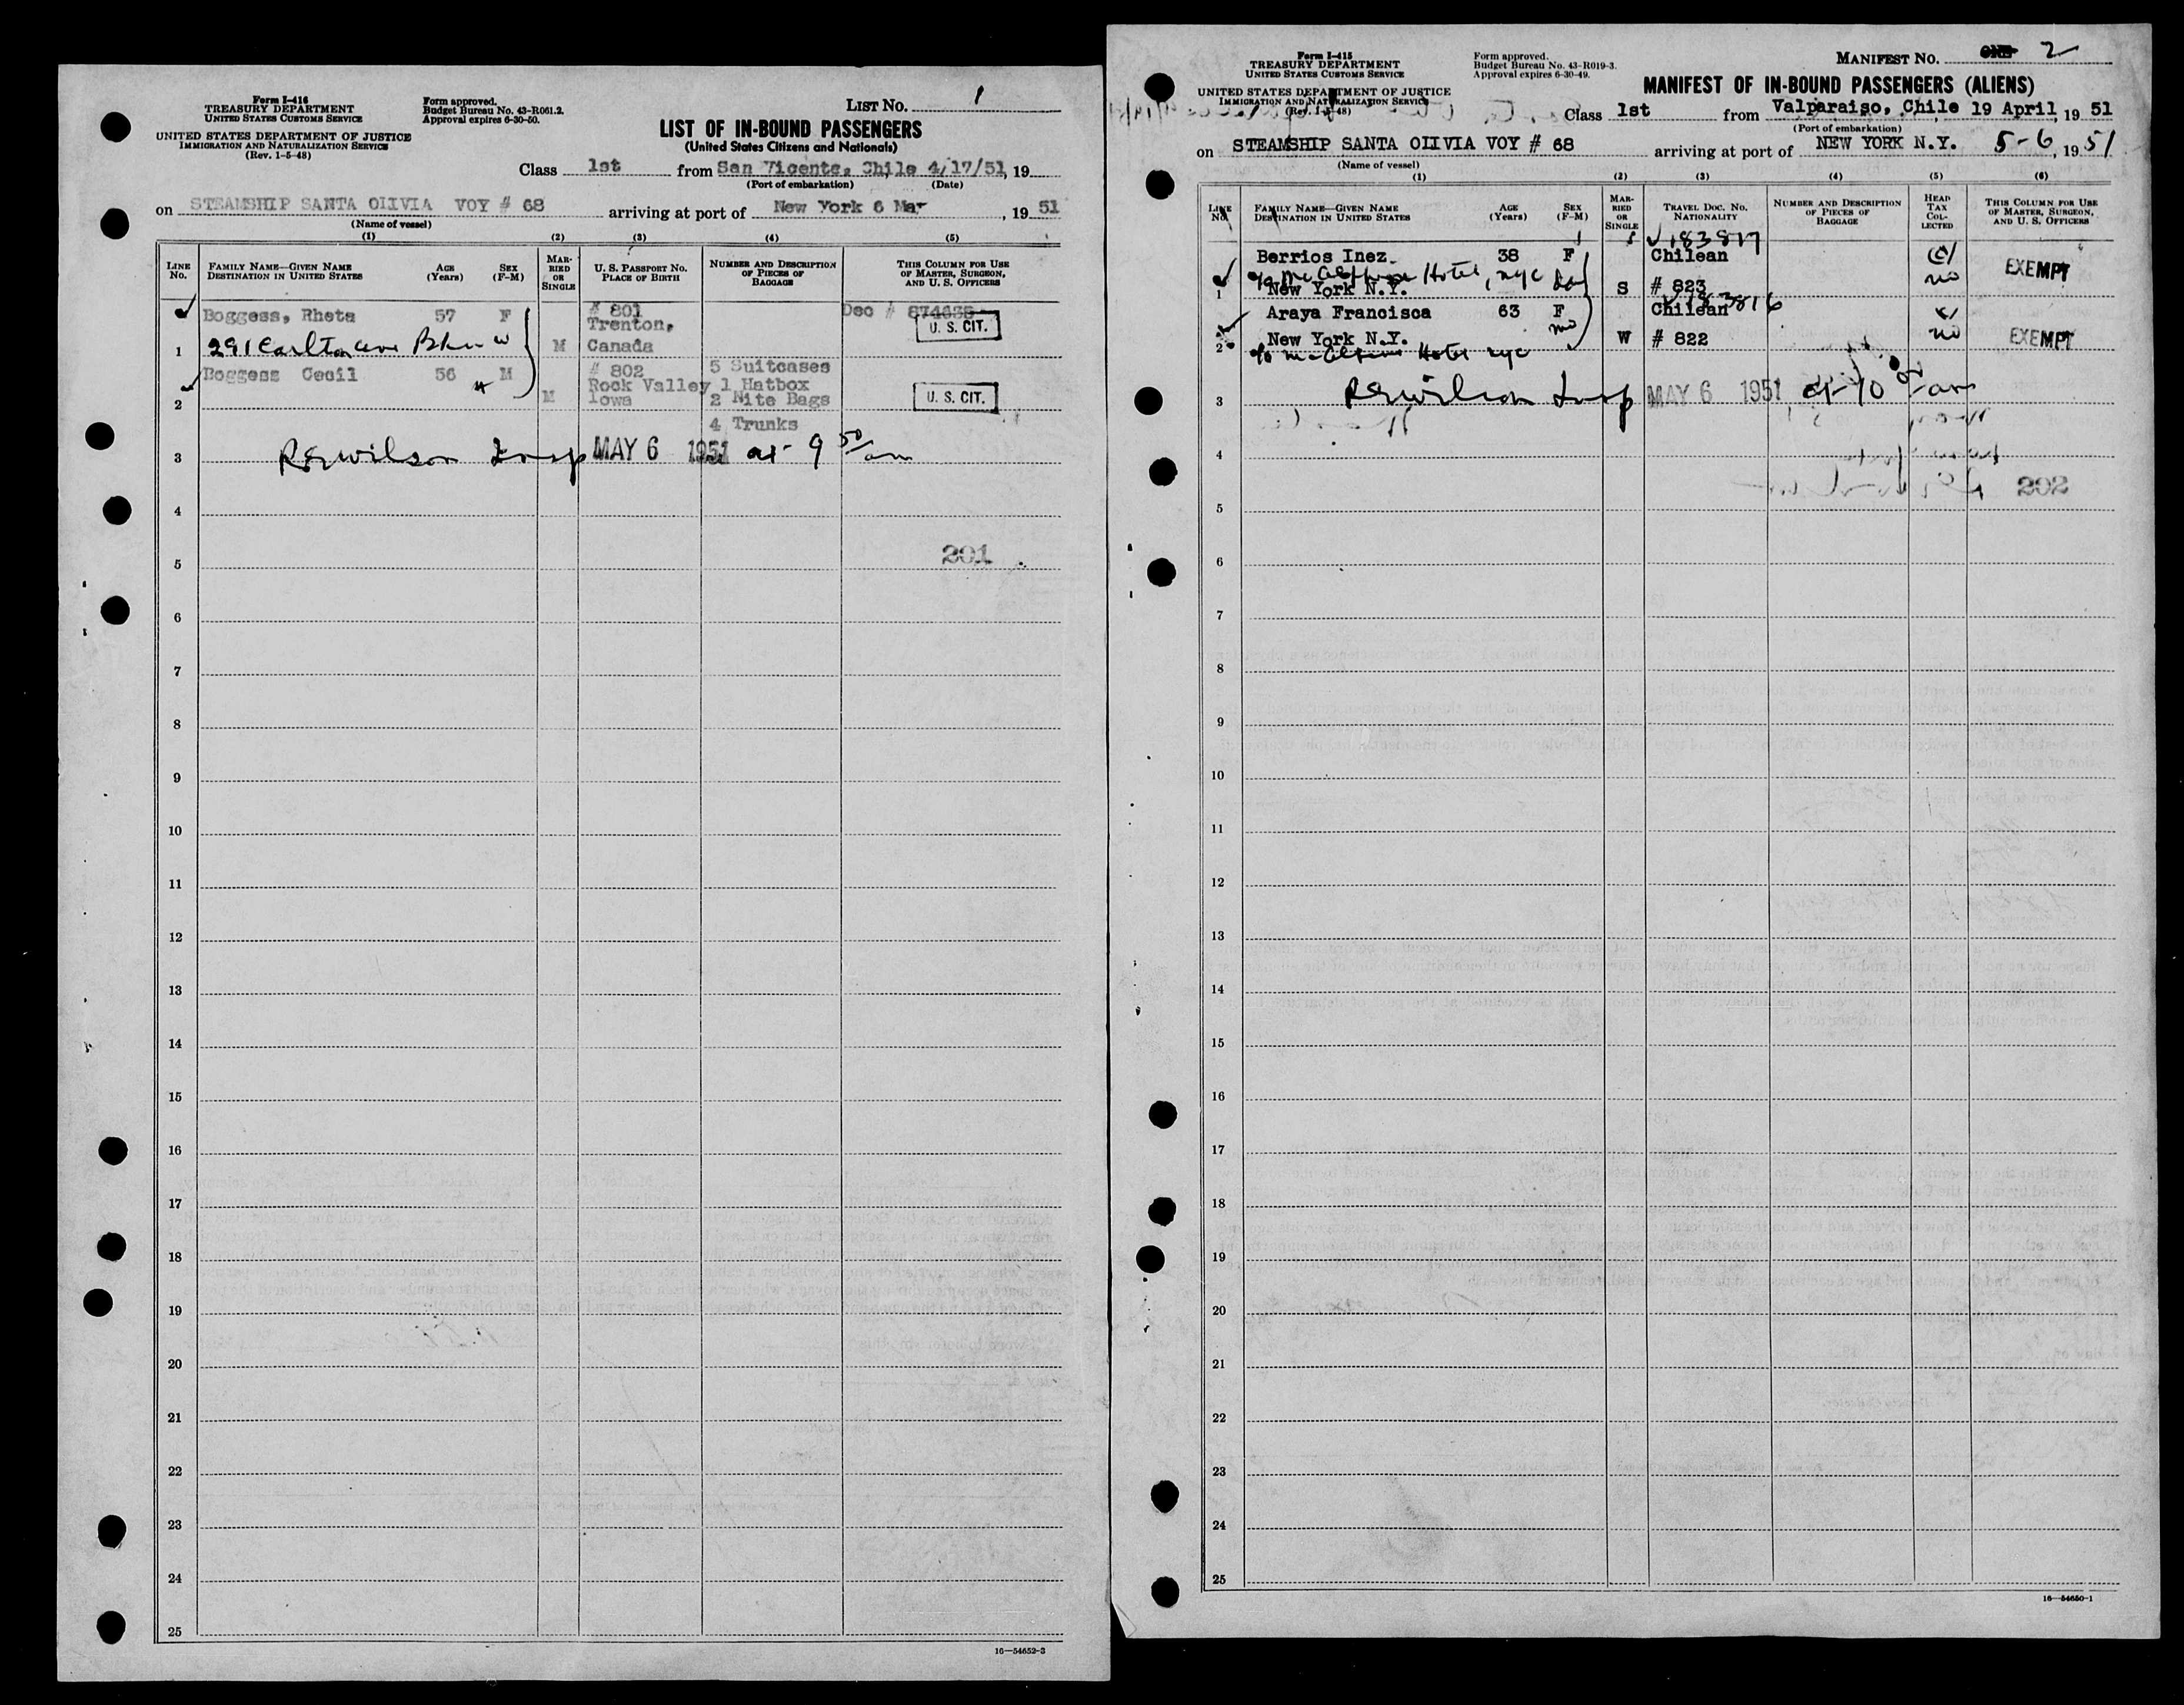 Form I-416
TREASURY DEPARTMENT
UNITED STATES CUSTOMS SERVICE
UNITED STATES DEPARTMENT OF JUSTICE
IMMIGRATION AND NATURALIZATION SERVICE
(Rev. 1-5-48)
Form approved.
Budget Bureau No. 43-R061.2.
Approval expires 6-30-50.
LIST NO. 1
LIST OF IN-BOUND PASSENGERS
(United States Citizens and Nationals)
Class 1st from San Vicente, Chile 4/17/51, 19
(Port of embarkation) (Date)
on STEAMSHIP SANTA OLIVIA VOY # 68 arriving at port of New York 6 Mar, 1951
(Name of vessel)
(1) (2) (3) (4) (5)
LINE NO. FAMILY NAME—GIVEN NAME DESTINATION IN UNITED STATES AGE (Years) SEX (F-M) MARRIED OR SINGLE U. S. PASSPORT NO. PLACE OF BIRTH NUMBER AND DESCRIPTION OF PIECES OF BAGGAGE THIS COLUMN FOR USE OF MASTER, SURGEON, AND U. S. OFFICERS
Boggess, Rheta 57 F # 801 Dec # 874635
Trenton, U. S. CIT.
1 291 Carlton Ave Bkn W M Canada
Boggess Cecil 56 M # 802 5 Suitcases
H Rock Valley 1 Hatbox
2 M Iowa 2 Nite Bags U. S. CIT.
4 Trunks
3 R E Wilson Insp MAY 6 1951 at 9 50/am
4
201
5
6
7
8
9
10
11
12
13
14
15
16
17
18
19
20
21
22
23
24
25
16—54652-3
Form I-415
TREASURY DEPARTMENT
UNITED STATES CUSTOMS SERVICE
UNITED STATES DEPARTMENT OF JUSTICE
IMMIGRATION AND NATURALIZATION SERVICE
(Rev. 1-5-48)
Form approved.
Budget Bureau No. 43-R019-3.
Approval expires 6-30-49.
MANIFEST NO. ONE 2
MANIFEST OF IN-BOUND PASSENGERS (ALIENS)
Class 1st from Valparaiso, Chile 19 April, 1951
(Port of embarkation)
on STEAMSHIP SANTA OLIVIA VOY # 68 arriving at port of NEW YORK N.Y. 5-6, 1951
(Name of vessel)
(1) (2) (3) (4) (5) (6)
LINE NO. FAMILY NAME—GIVEN NAME DESTINATION IN UNITED STATES AGE (Years) SEX (F-M) MARRIED OR SINGLE TRAVEL DOC. NO. NATIONALITY NUMBER AND DESCRIPTION OF PIECES OF BAGGAGE HEAD TAX COLLECTED THIS COLUMN FOR USE OF MASTER, SURGEON, AND U. S. OFFICERS
V183817
Berrios Inez 38 F Chilean
c/o McAlpine Hotel, nyc no EXEMPT
1 New York N.Y. S # 823
V183816
Araya Francisca 63 F Chilean
2 New York N.Y. mo W # 822 no EXEMPT
c/o McAlpine Hotel nyc
3 R E Wilson Insp MAY 6 1951 at 10 am
4
202
5
6
7
8
9
10
11
12
13
14
15
16
17
18
19
20
21
22
23
24
25
16—54650-1